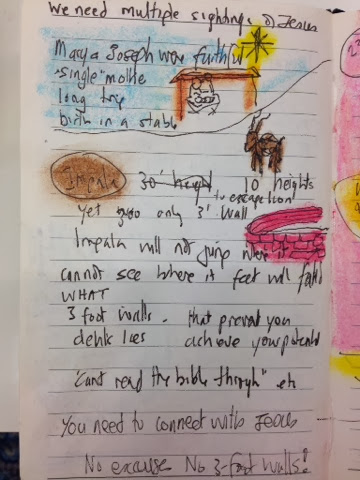 We need multiple sightings of Jesus
Mary & Joseph were faithful
"single" mothe
long trip
birth in a stable
Impala 30' height 10 heights
to escape lion!
Yet zoo only 3' wall
Impala will not jump where it
cannot see where it feet will fall
WHAT
3 foot walls. that prevent you
achieve your potential
"Cant read the bible through" etc
You need to connect with Jesus
No excuse No 3-foot walls!